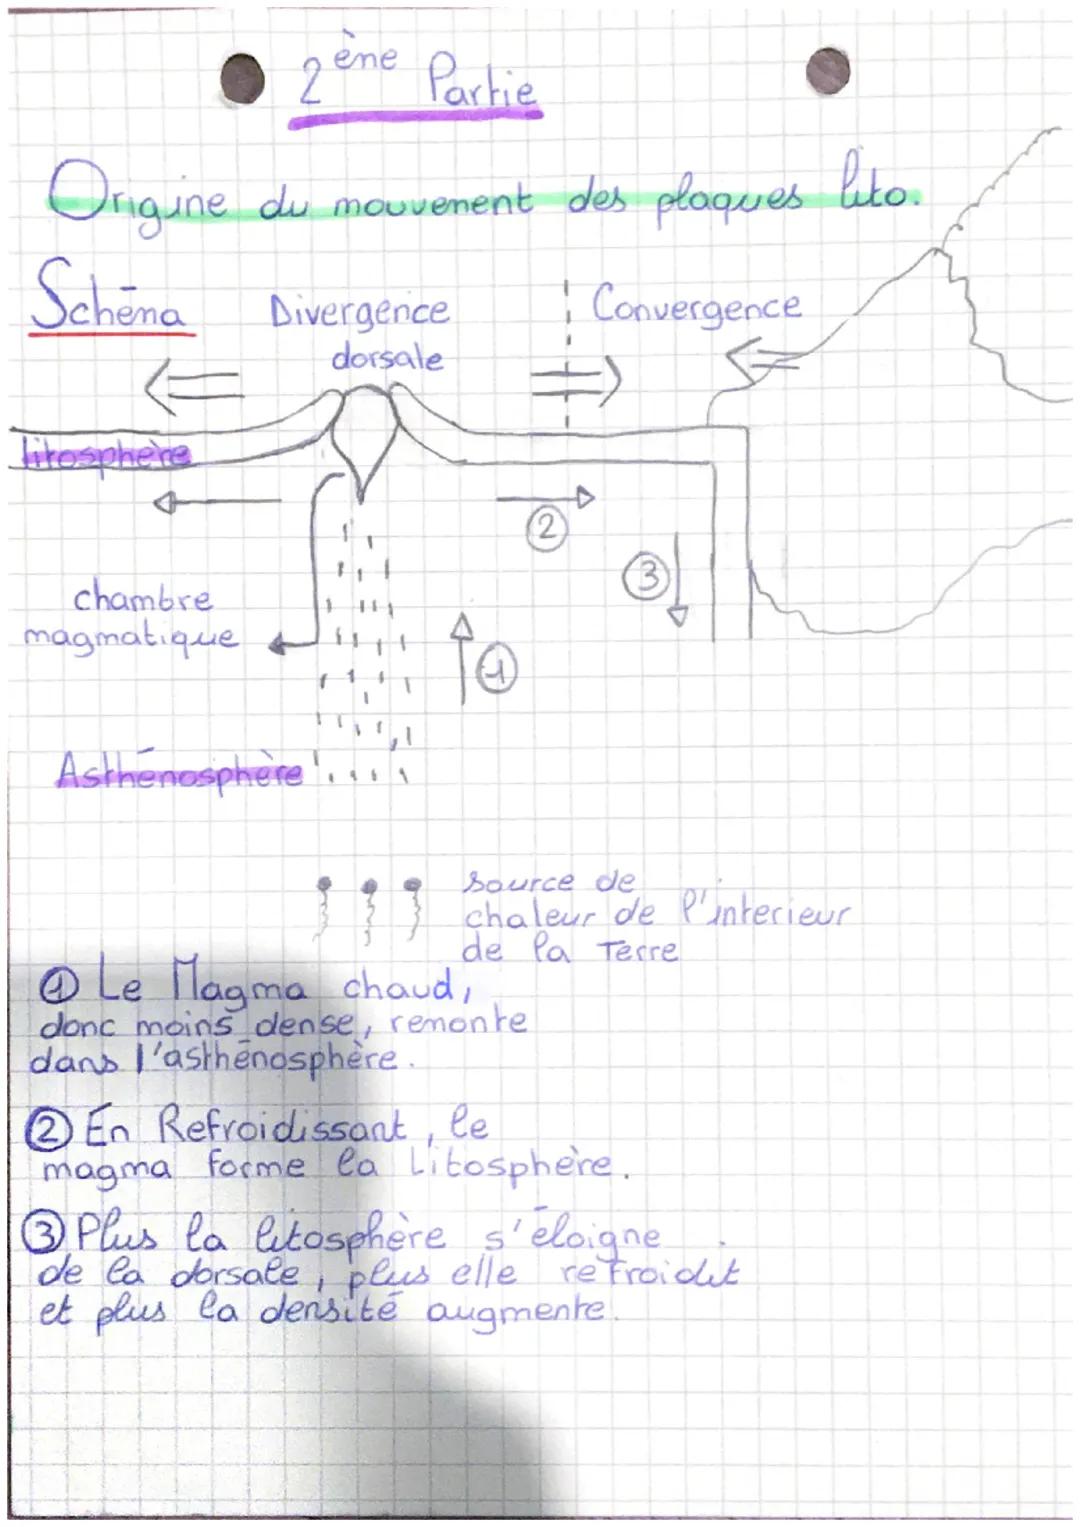 2ène Partie
Origine du mouvement des plaques lito.
Schéma
Divergence
dorsale
Convergence
litosphère
2
3
chambre
magmatique
1
Asthénosphère
source de
chaleur de l'interieur
de la Terre
① Le Magma chaud,
donc moins dense, remonte
dans l'asthénosphère.
② En Refroidissant, le
magma forme la Litosphère.
③ Plus la litosphère s'éloigne
de la dorsale, plus elle refroidit
et plus la densité augmente.